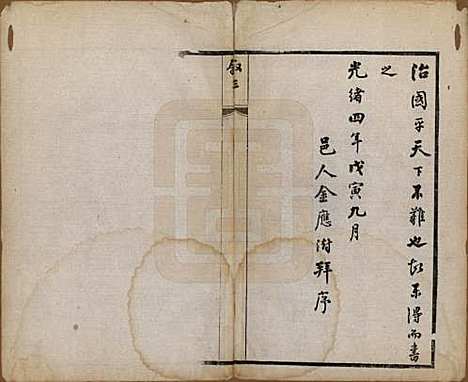 治國平天下不難也故不得而書
之
光緒四年戊寅九月
邑人金應澍拜序
叙三